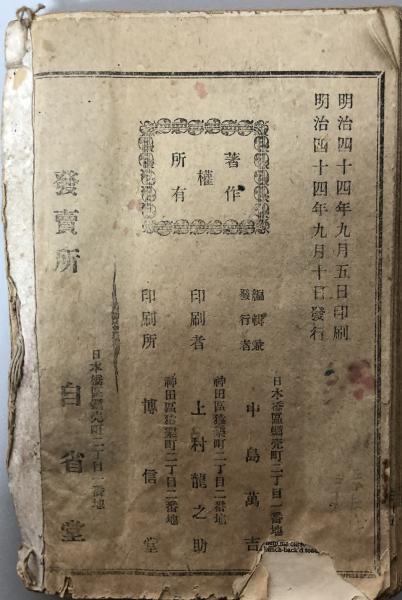 明治四十四年九月五日印刷
明治四十四年九月十日發行
著作
權
所有
編輯兼
發行者
日本橋區蠣壳町二丁目一番地
中島萬吉
印刷者
神田區猿樂町二丁目二番地
上村龍之助
印刷所
神田區猿樂町二丁目二番地
博信堂
日本橋區蠣壳町二丁目一番地
發賣所 自省堂